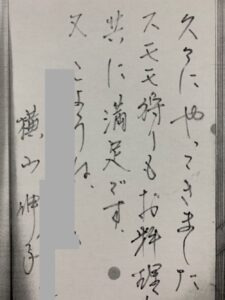 久々にやってきました
スモモ狩りもお料理も
共に満足です。
又こようね、
横山